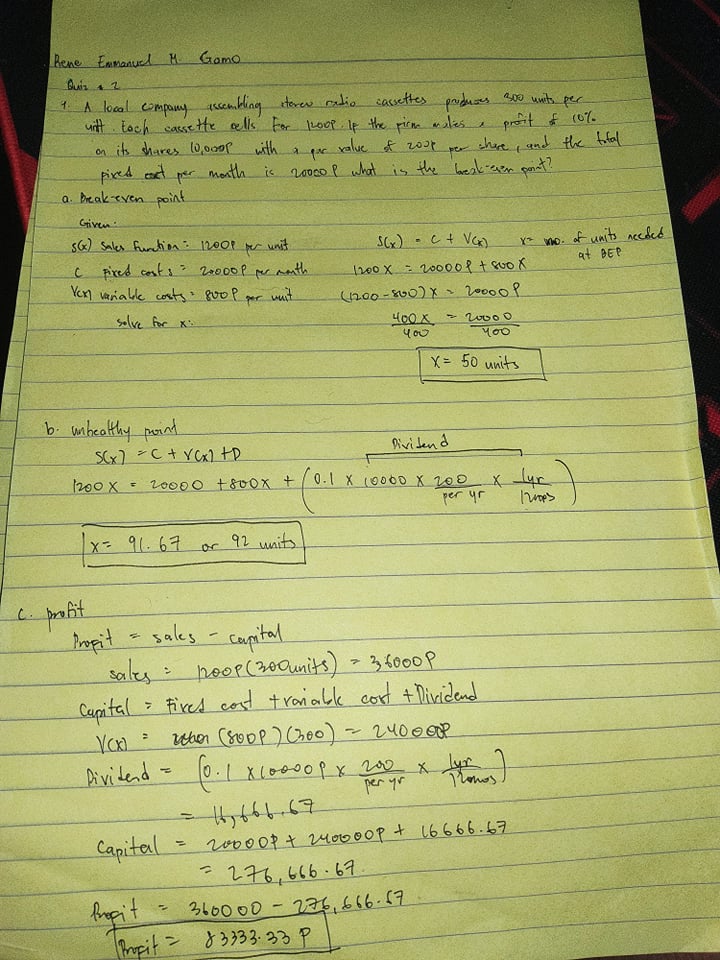 Rene Emmanuel M Gamo
Quiz # 2
1. A local company assembling stereo radio cassettes produces 300 units per
unit. Each cassette sells for 1200P. If the firm makes a profit of 10%
on its shares 10,000P with a par value of 200P per share, and the total
fixed cost per month is 20000P what is the break-even point?
a. Break-even point
Given:
S(x) Sales Function = 1200P per unit
C fixed costs = 20000P per month
V(x) variable costs = 800P per unit
solve for x:
S(x) = C + V(x) x = no. of units needed
at BEP
1200x = 20000P + 800x
(1200-800)x = 20000P
400x = 20000
400 400
x = 50 units
b. unhealthy point
S(x) = C + V(x) + D
Dividend
1200x = 20000 + 800x + (0.1 x 10000 x 200 x 1yr)
per yr 12mos
x = 91.67 or 92 units
c. profit
Profit = sales - capital
sales = 1200P (300units) = 36000P
Capital = Fixed cost + variable cost + Dividend
V(x) = (800P)(300) = 240000P
Dividend = (0.1 x 10000P x 200 x 1yr)
per yr 12mos
= 16,666.67
Capital = 20000P + 240000P + 16666.67
= 276,666.67
Profit = 360000 - 276,666.67
Profit = 83333.33 P